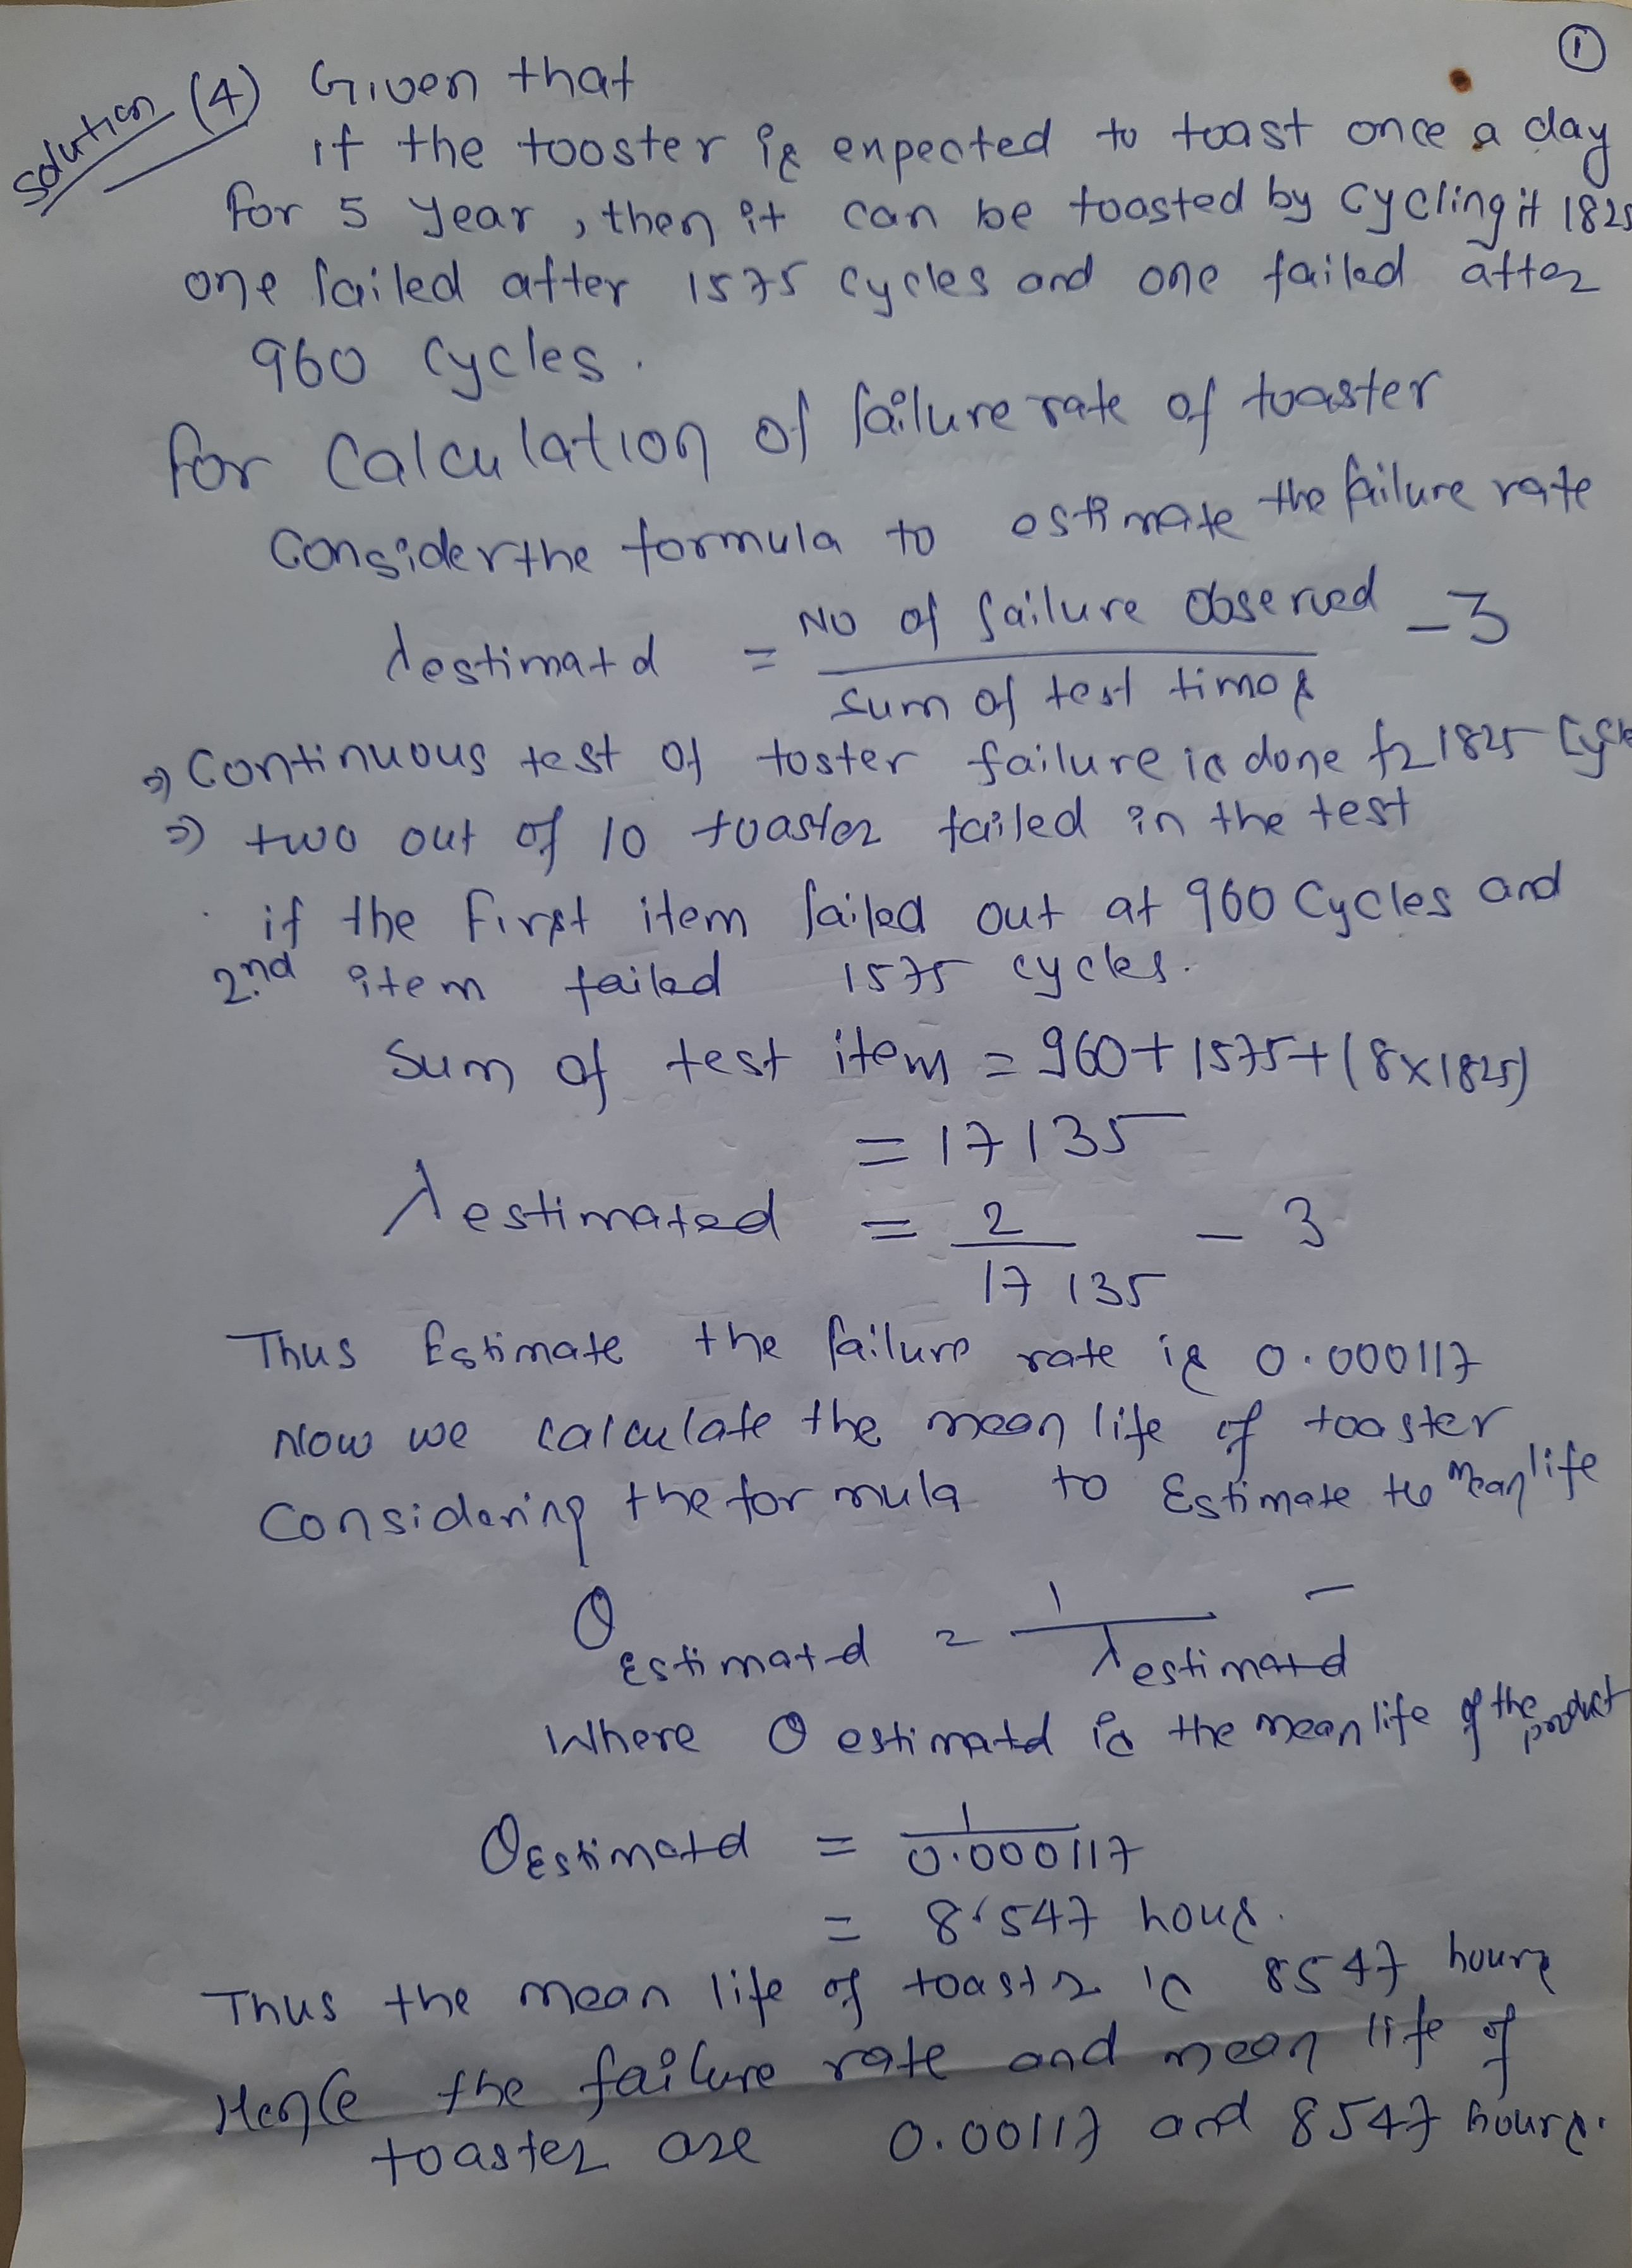 1
Solution (4) Given that
if the tooster is expected to toast once a day
for 5 year, then it can be toasted by cycling it 1825
one failed after 1575 cycles and one failed after
960 cycles.
For Calculation of failure rate of toaster
Consider the formula to estimate the failure rate
λestimatd = No of failure observed / sum of test times - 3
⇒ Continuous test of toster failure is done for 1825 Cycle
⇒ two out of 10 toaster failed in the test
if the first item failed out at 960 Cycles and
2nd item failed 1575 cycles.
Sum of test item = 960+1575+(8×1825)
= 17135
λestimated = 2 / 17135 - 3
Thus Estimate the failure rate is 0.000117
Now we calculate the mean life of toaster
Considering the formula to Estimate the Mean life
θEstimatd = 1 / λestimatd -
Where θ estimatd is the mean life of the product
θEstimatd = 1 / 0.000117
= 8'547 hours.
Thus the mean life of toaster is 8547 hours
Hence the failure rate and mean life of
toaster are 0.00117 and 8547 hours.